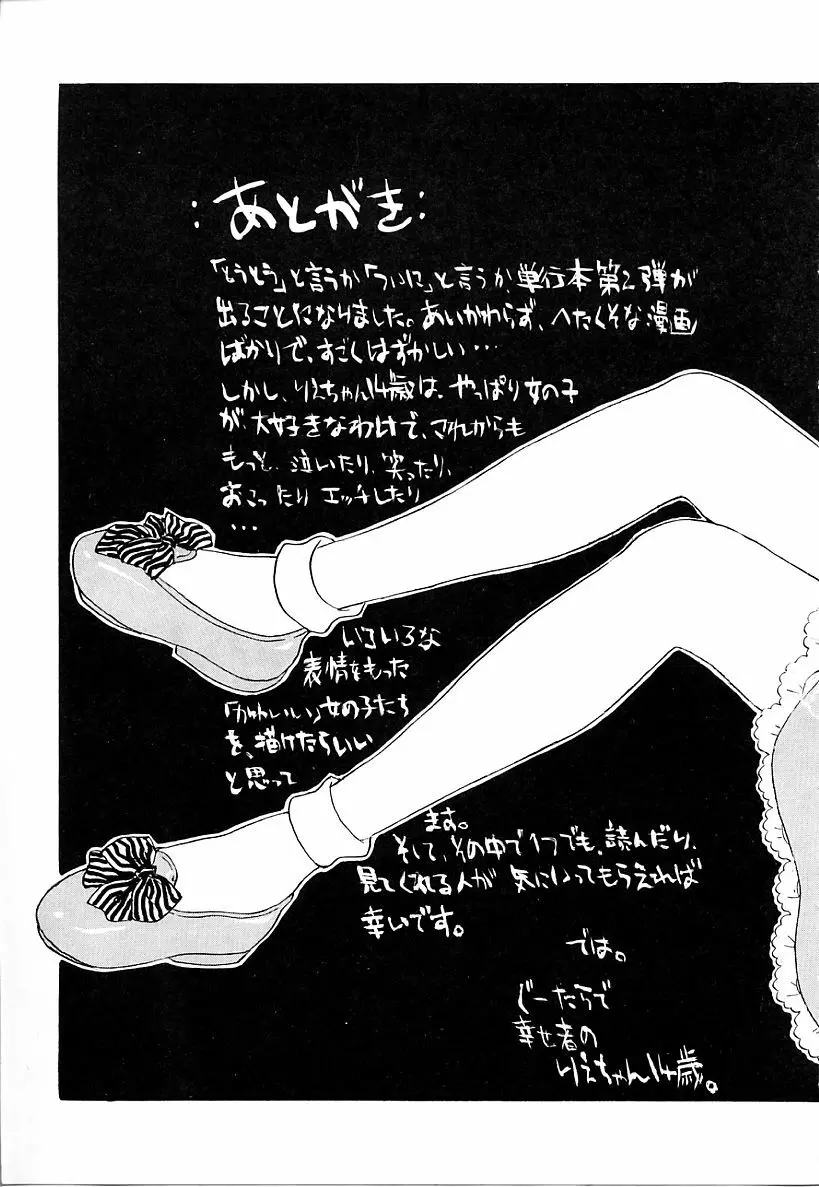 :あとがき:
「とうとう」と言うか「ついに」と言うか、単行本第2弾が
出ることになりました。あいかわらず、へたくそな漫画
ばかりで、すごくはずかしい・・・
しかし、りえちゃん14歳は、やっぱり女の子
が、大好きなわけで、これからも
もっと、泣いたり、笑ったり、
おこったり エッチしたり
・・・
いろいろな
表情をもった
「かわいい」女の子たち
を、描けたらいい
と思って
ます。
そして、その中で1つでも、読んだり、
見てくれる人が 気にいってもらえれば
幸いです。
では。
じーたらで
幸せ者の
りえちゃん14歳。